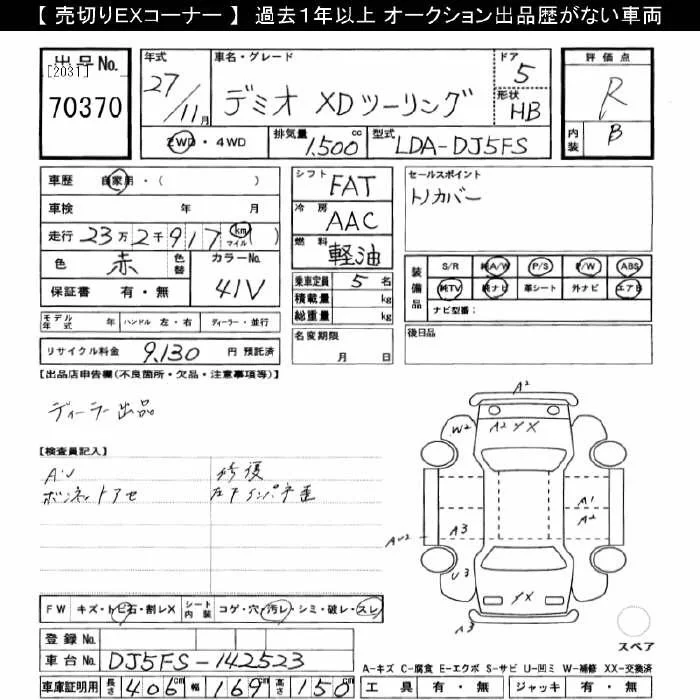 【 売切りEXコーナー 】 過去1年以上 オークション出品歴がない車両
出品No.
[2031]
70370
年式
27/11月
車名・グレード
デミオ XDツーリング
ドア
5
形状
HB
評価点
R
内装
B
2WD・4WD
排気量 1,500 cc
型式 LDA-DJ5FS
車歴 自家用・( )
車検 年 月
走行 23万2千917 km マイル ( )
色 赤 色替
カラーNo. 41V
保証書 有・無
シフト FAT
冷房 AAC
燃料 軽油
乗車定員 5 名
積載量 kg
総重量 kg
セールスポイント
トノカバー
装備品
S/R 純A/W P/S P/W ABS
純TV 純ナビ 革シート 外ナビ エアB
ナビ型番:
モデル年式 年 ハンドル 左・右 ディーラー・並行
名変期限 月 日
後日品
リサイクル料金 9,130 円 預託済
【出品店申告欄(不良箇所・欠品・注意事項等)】
ディーラー出品
【検査員記入】
AU
ボンネットアセ
修復
左下インパネ歪
A2
W2
A2 YX
A1
A2
AU2
A3
U3
YX
A3
スペア
FW キズ・トビ石・割レX シート内装 コゲ・穴・汚レ・シミ・破レ・スレ
登録No.
車台No. DJ5FS-142523
車庫証明用 長さ 406 cm 幅 169 cm 高さ 150 cm
A-キズ C-腐食 E-エクボ S-サビ U-凹ミ W-補修 XX-交換済
工具 有・無 ジャッキ 有・無